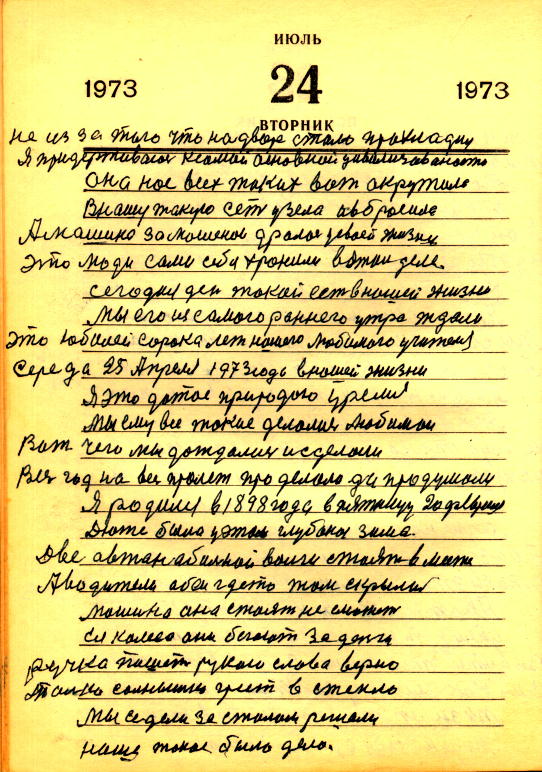 ИЮЛЬ
1973 24 1973
ВТОРНИК
не из за того что на дворе стало прохладну
Я придерживаюс к самой основной
Она нас всех таких вот окружила
В нашу такую сет узела
А машина
Это люди сами себя хронили в этом деле.
Сегодня ден такой ест в нашей жизни
Мы его из самого раннего утра ждали
Это Юбилей сорока лет нашего любимого учителя
Середа 25 Апреля 1973 года в нашей жизни
Я Это
Мы ему все такие делалис любимои
Вот чего мы дождалис и сделали
Вес год на вес пролет проделала да продумали
Я родилис в 1898 года в пятницу 20 февраля
Тоже была у этом глубока зима.
Две стоят в месте
А водители оба где то там скрылис
Машина она стоят не сможет
Ея колеса они бегают за денги
Ручка пишет рукою слова верно
Только солнышко греет в стекло
Мы седели за столом решали
Наше такое было дело.